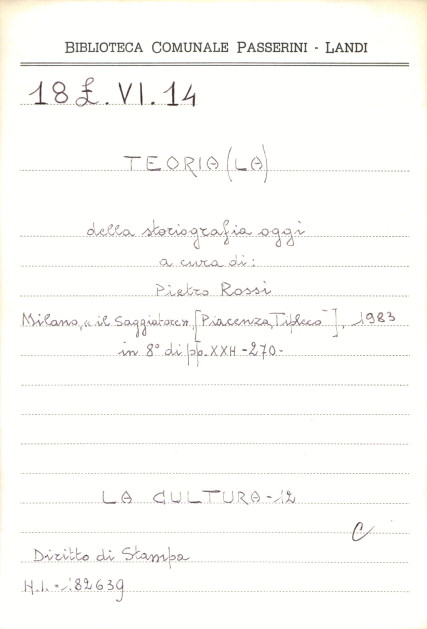 BIBLIOTECA COMUNALE PASSERINI - LANDI
18 £. VI. 14
TEORIA (LA)
della storiografia oggi
a cura di:
Pietro Rossi
Milano, «il Saggiatore», [Piacenza, Tipleco], 1983
in 8° di pp. XXII - 270.-
LA CULTURA - 12
C
Diritto di Stampa
H.I. - 182639